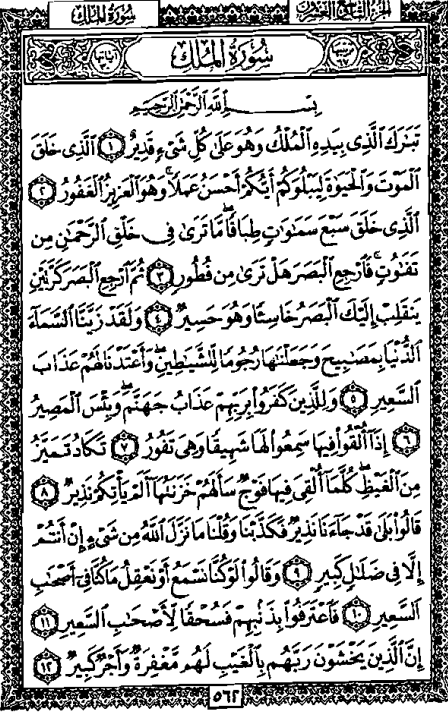 سُورَةُ المُلْكِ
الجُزْءُ التَّاسِعُ وَالعِشْرُونَ
سُورَةُ المُلْكِ
بِسْمِ اللَّهِ الرَّحْمَٰنِ الرَّحِيمِ
تَبَٰرَكَ ٱلَّذِى بِيَدِهِ ٱلْمُلْكُ وَهُوَ عَلَىٰ كُلِّ شَىْءٍ قَدِيرٌ ١ ٱلَّذِى خَلَقَ
ٱلْمَوْتَ وَٱلْحَيَوٰةَ لِيَبْلُوَكُمْ أَيُّكُمْ أَحْسَنُ عَمَلًا ۚ وَهُوَ ٱلْعَزِيزُ ٱلْغَفُورُ ٢
ٱلَّذِى خَلَقَ سَبْعَ سَمَٰوَٰتٍ طِبَاقًا ۖ مَّا تَرَىٰ فِى خَلْقِ ٱلرَّحْمَٰنِ مِن
تَفَٰوُتٍ ۖ فَٱرْجِعِ ٱلْبَصَرَ هَلْ تَرَىٰ مِن فُطُورٍ ٣ ثُمَّ ٱرْجِعِ ٱلْبَصَرَ كَرَّتَيْنِ
يَنقَلِبْ إِلَيْكَ ٱلْبَصَرُ خَاسِئًا وَهُوَ حَسِيرٌ ٤ وَلَقَدْ زَيَّنَّا ٱلسَّمَآءَ
ٱلدُّنْيَا بِمَصَٰبِيحَ وَجَعَلْنَٰهَا رُجُومًا لِّلشَّيَٰطِينِ ۖ وَأَعْتَدْنَا لَهُمْ عَذَابَ
ٱلسَّعِيرِ ٥ وَلِلَّذِينَ كَفَرُوا۟ بِرَبِّهِمْ عَذَابُ جَهَنَّمَ ۖ وَبِئْسَ ٱلْمَصِيرُ
٦ إِذَآ أُلْقُوا۟ فِيهَا سَمِعُوا۟ لَهَا شَهِيقًا وَهِىَ تَفُورُ ٧ تَكَادُ تَمَيَّزُ
مِنَ ٱلْغَيْظِ ۖ كُلَّمَآ أُلْقِىَ فِيهَا فَوْجٌ سَأَلَهُمْ خَزَنَتُهَآ أَلَمْ يَأْتِكُمْ نَذِيرٌ ٨
قَالُوا۟ بَلَىٰ قَدْ جَآءَنَا نَذِيرٌ فَكَذَّبْنَا وَقُلْنَا مَا نَزَّلَ ٱللَّهُ مِن شَىْءٍ إِنْ أَنتُمْ
إِلَّا فِى ضَلَٰلٍ كَبِيرٍ ٩ وَقَالُوا۟ لَوْ كُنَّا نَسْمَعُ أَوْ نَعْقِلُ مَا كُنَّا فِىٓ أَصْحَٰبِ
ٱلسَّعِيرِ ١٠ فَٱعْتَرَفُوا۟ بِذَنۢبِهِمْ فَسُحْقًا لِّأَصْحَٰبِ ٱلسَّعِيرِ ١١
إِنَّ ٱلَّذِينَ يَخْشَوْنَ رَبَّهُم بِٱلْغَيْبِ لَهُم مَّغْفِرَةٌ وَأَجْرٌ كَبِيرٌ ١٢
٥٦٢